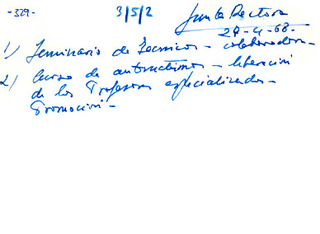 -329-
3/5/2
Junta Rectora
29-4-68-
1) Seminario de Técnicos - colaboradores-
2) Curso de automatismos - liberación
de los Profesores especializados -
Promoción -